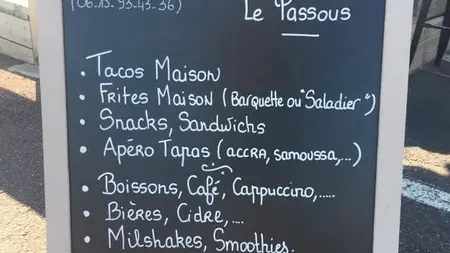 (06.15.93.43.36)
Le Passous
• Tacos Maison
• Frites Maison (Barquette ou "Saladier")
• Snacks, Sandwichs
• Apéro Tapas (accra, samoussa,...)
• Boissons, Café, Cappuccino,.....
• Bières, Cidre,....
• Milshakes, Smoothies.